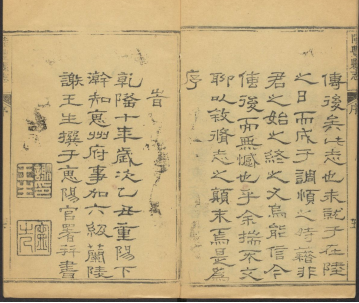 傳後矣此志也未就于在陸
之日而成于調煩之時藉非
君之始之終之文烏能信今
傳後而無憾也乎余揣不文
聊以敘濟志之顛末焉是為
序
旹
乾隆十年歲次乙丑重陽下
澣知惠州府事加六級蘭陵
謝王生撰于惠陽官署幷書